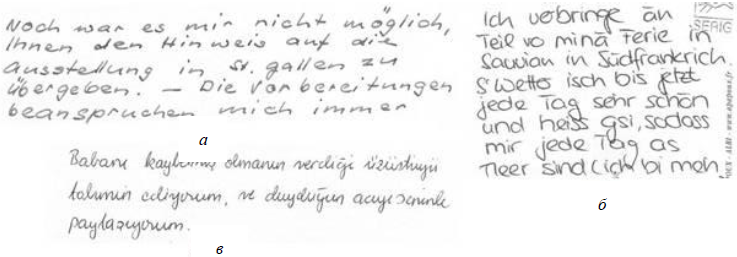 Noch war es mir nicht möglich,
Ihnen den Hinweis auf die
Ausstellung in St. Gallen zu
übergeben. — Die Vorbereitungen
beanspruchen mich immer
а
Ich verbringe än
Teil vo minä Ferie in
Sauvian in Südfrankrich.
S'Wetter isch bis jetzt
jede Tag sehr schön
und heiss gsi, sodass
mir jede Tag as
Meer sind (ich bi meh.
SERIG
б
Babanı kaybetmiş olmanın verdiği üzüntüyü
tahmin ediyorum, ve duyduğun acıyı seninle
paylaşıyorum.
в